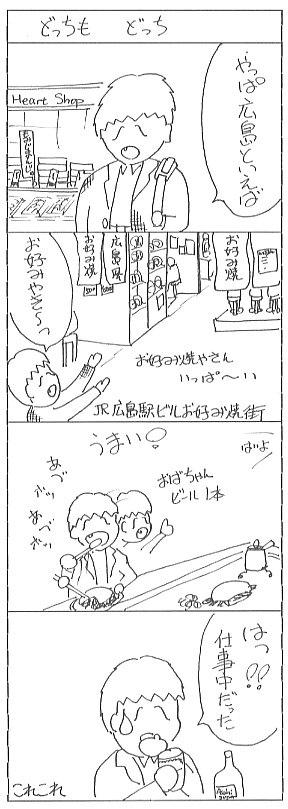 どっちも どっち
やっぱ広島といえば
Heart Shop
お好みやき〜っ
お好み焼
広島風
お好み焼
お好み焼やさん
いっぱ〜い
JR広島駅ビルお好み焼街
うまい!
ばよ
あべ
ホッ
あべ
ホッ
おばちゃん
ビール1本
はっ!!
仕事中だった
Asahi
これこれ